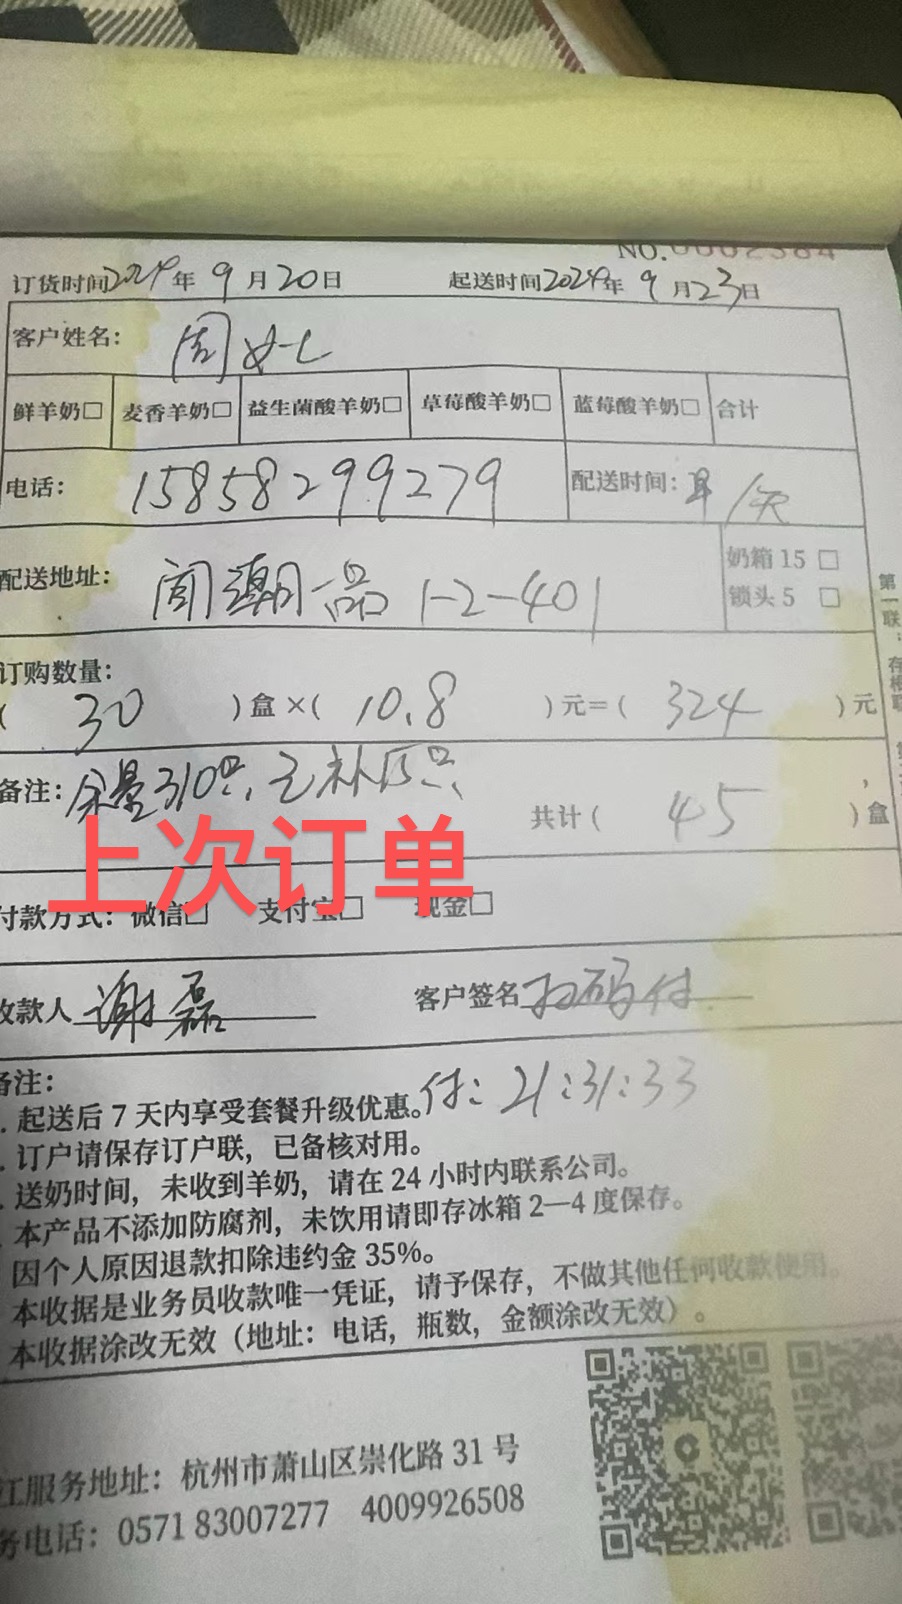 NO.0002384
订货时间2024年 9 月20日 起送时间2024年 9 月23日
客户姓名: 周女士
鲜羊奶□ 麦香羊奶□ 益生菌酸羊奶□ 草莓酸羊奶□ 蓝莓酸羊奶□ 合计
电话: 15858299279 配送时间: /天
配送地址: 闻潮一品 1-2-401
奶箱 15 □
锁头 5 □
订购数量:
( 30 )盒×( 10.8 )元=( 324 )元
备注: 余量310只, 补15只
共计( 45 )盒
上次订单
付款方式: 微信□ 支付宝□ 现金□
收款人 谢磊 客户签名 扫码付
备注: 付: 21:31:33
. 起送后 7 天内享受套餐升级优惠。
. 订户请保存订户联，已备核对用。
. 送奶时间，未收到羊奶，请在 24 小时内联系公司。
本产品不添加防腐剂，未饮用请即存冰箱 2—4 度保存。
因个人原因退款扣除违约金 35%。
本收据是业务员收款唯一凭证，请予保存，不做其他任何收款使用。
本收据涂改无效（地址：电话，瓶数，金额涂改无效）。
江服务地址：杭州市萧山区崇化路 31 号
务电话：0571 83007277 4009926508
第一联：存根联